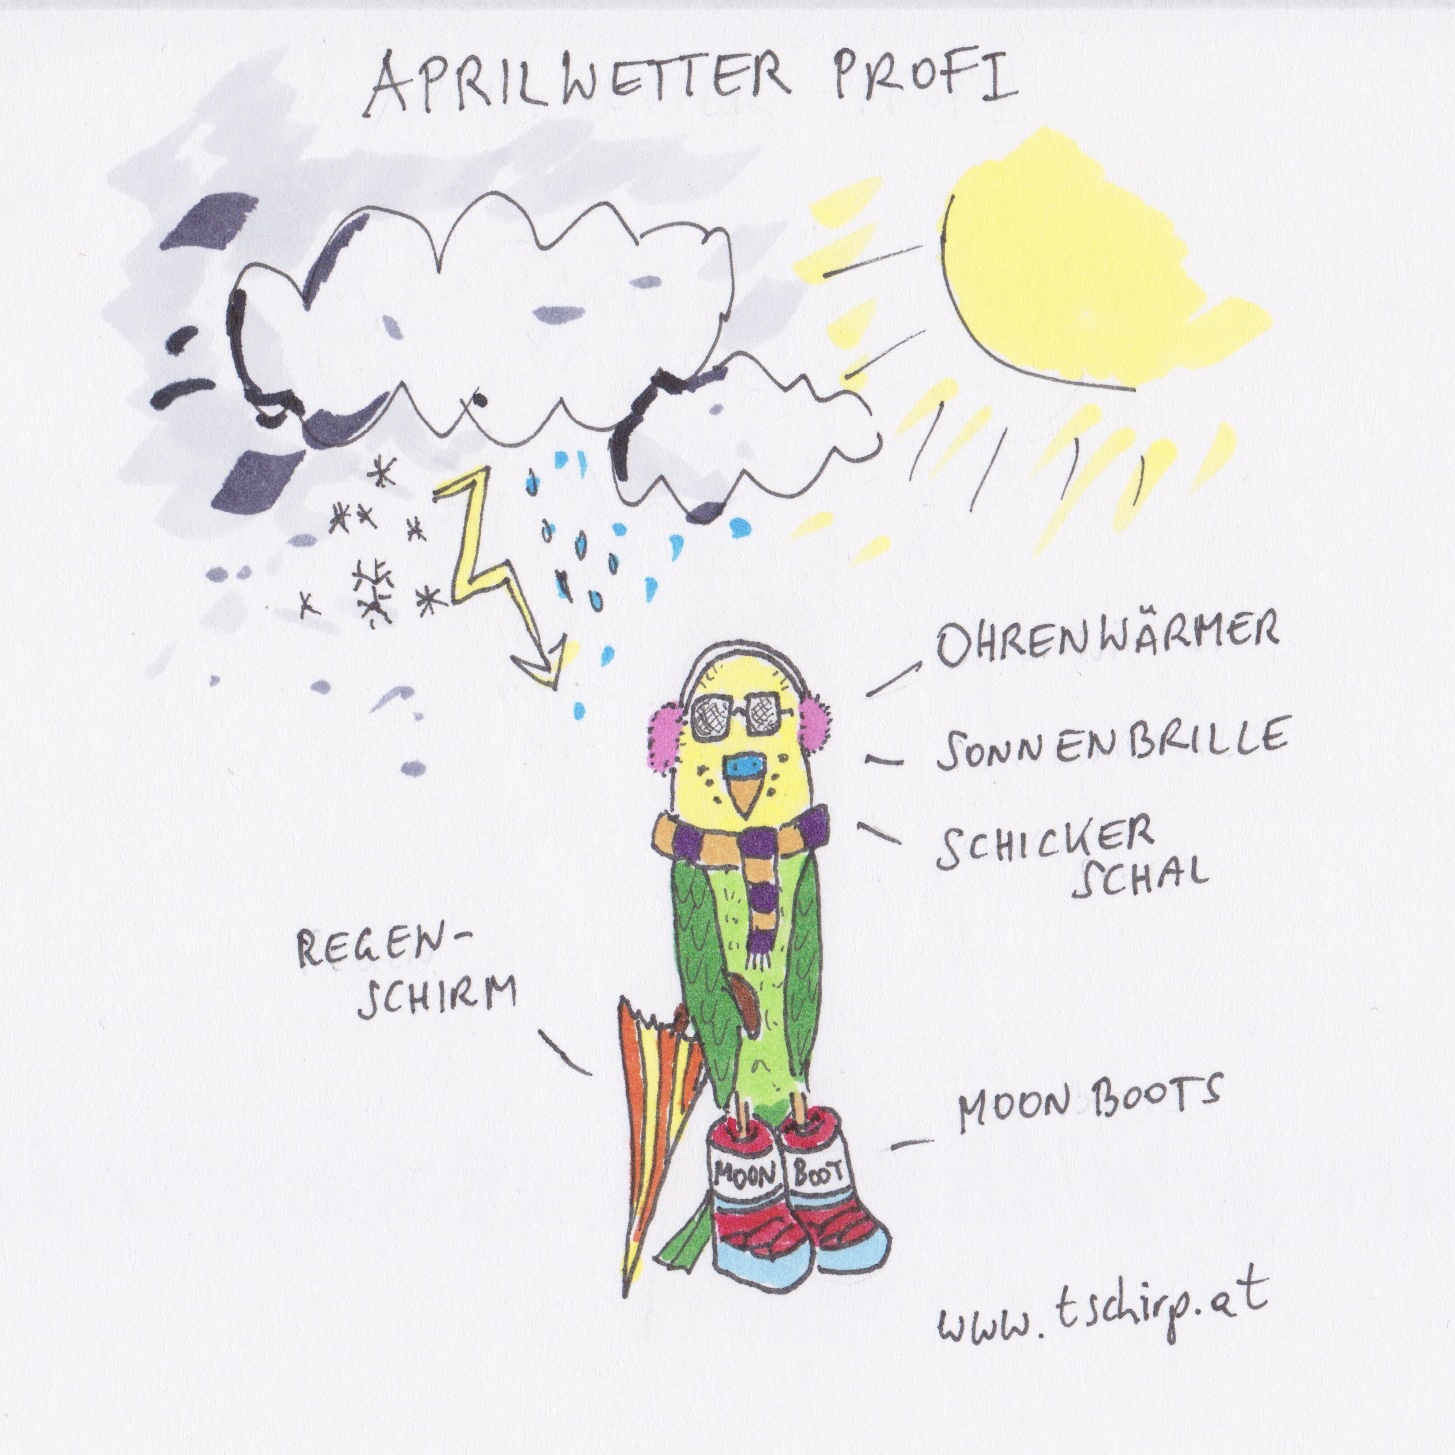 APRILWETTER PROFI
OHRENWÄRMER
SONNENBRILLE
SCHICKER
SCHAL
REGEN-
SCHIRM
MOON BOOTS
MOON BOOT
www.tschirp.at